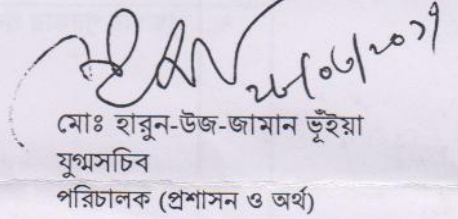 মোঃ হারুন-উজ-জামান ভূঁইয়া
যুগ্মসচিব
পরিচালক (প্রশাসন ও অর্থ)